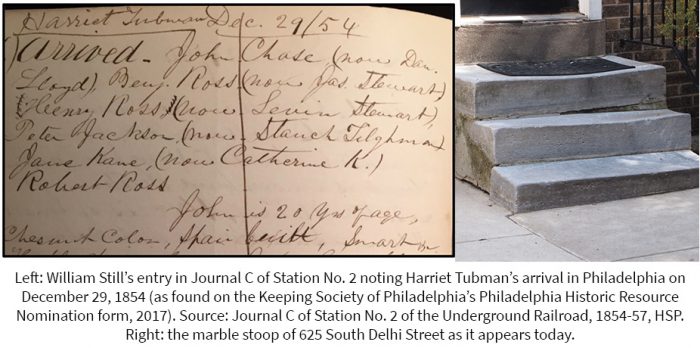 Harriet Tubman Dec. 29/54
Arrived - John Chase (now Dan.
Lloyd), Benj. Ross (now Jas. Stewart)
(Heenry Ross) (now Levin Stewart),
Peter Jackson (now Stanch Tilghman)
Jane Kane, (now Catherine K.)
Robert Ross
John is 20 yrs of age,
Chesnut Color, Spare built, Smart &
Left: William Still's entry in Journal C of Station No. 2 noting Harriet Tubman's arrival in Philadelphia on
December 29, 1854 (as found on the Keeping Society of Philadelphia's Philadelphia Historic Resource
Nomination form, 2017). Source: Journal C of Station No. 2 of the Underground Railroad, 1854-57, HSP.
Right: the marble stoop of 625 South Delhi Street as it appears today.